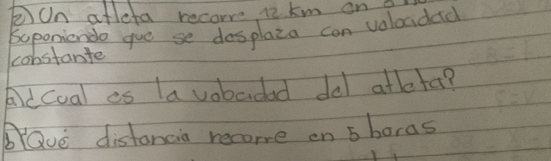 2) Un atleta recorre 12 km en
Suponiendo que se desplaza con velocidad
constante
a) ¿Cual es la velocidad del atleta?
b) Qué distancia recorre en 5 horas